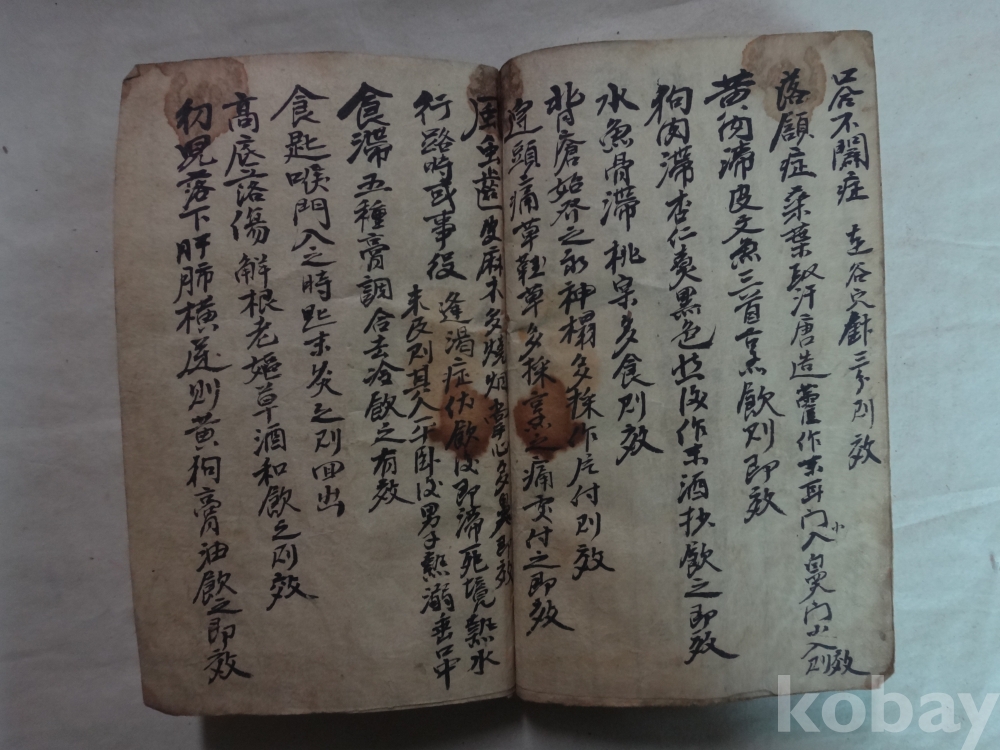 口噤不開症 在谷穴針三分則效
落頷症 桑葉取汗唐造 作末耳門入鼻門小入則效
小
黃肉滯 皮文魚三首烹飲則即效
狗肉滯 杏仁 黑色 作末酒抄飲之即效
水魚骨滯 桃 多食則效
背瘡始發之 神 多採作片付則效
頭痛 草鞋草多採烹之痛 付之即效
風虫齒 皮麻木多燒烟 心多 即效
行路時或事役 逢渴症 飲後即滯死境熱水
末 則其人平臥後男子熱溺垂口中
食滯 五種膏調合去冷飲之有效
食匙喉門入之時匙末灸之則回出
高底落傷 解根老嫗草酒和飲之則效
落下肝肺橫 則黃狗膏油飲之即效
kobay